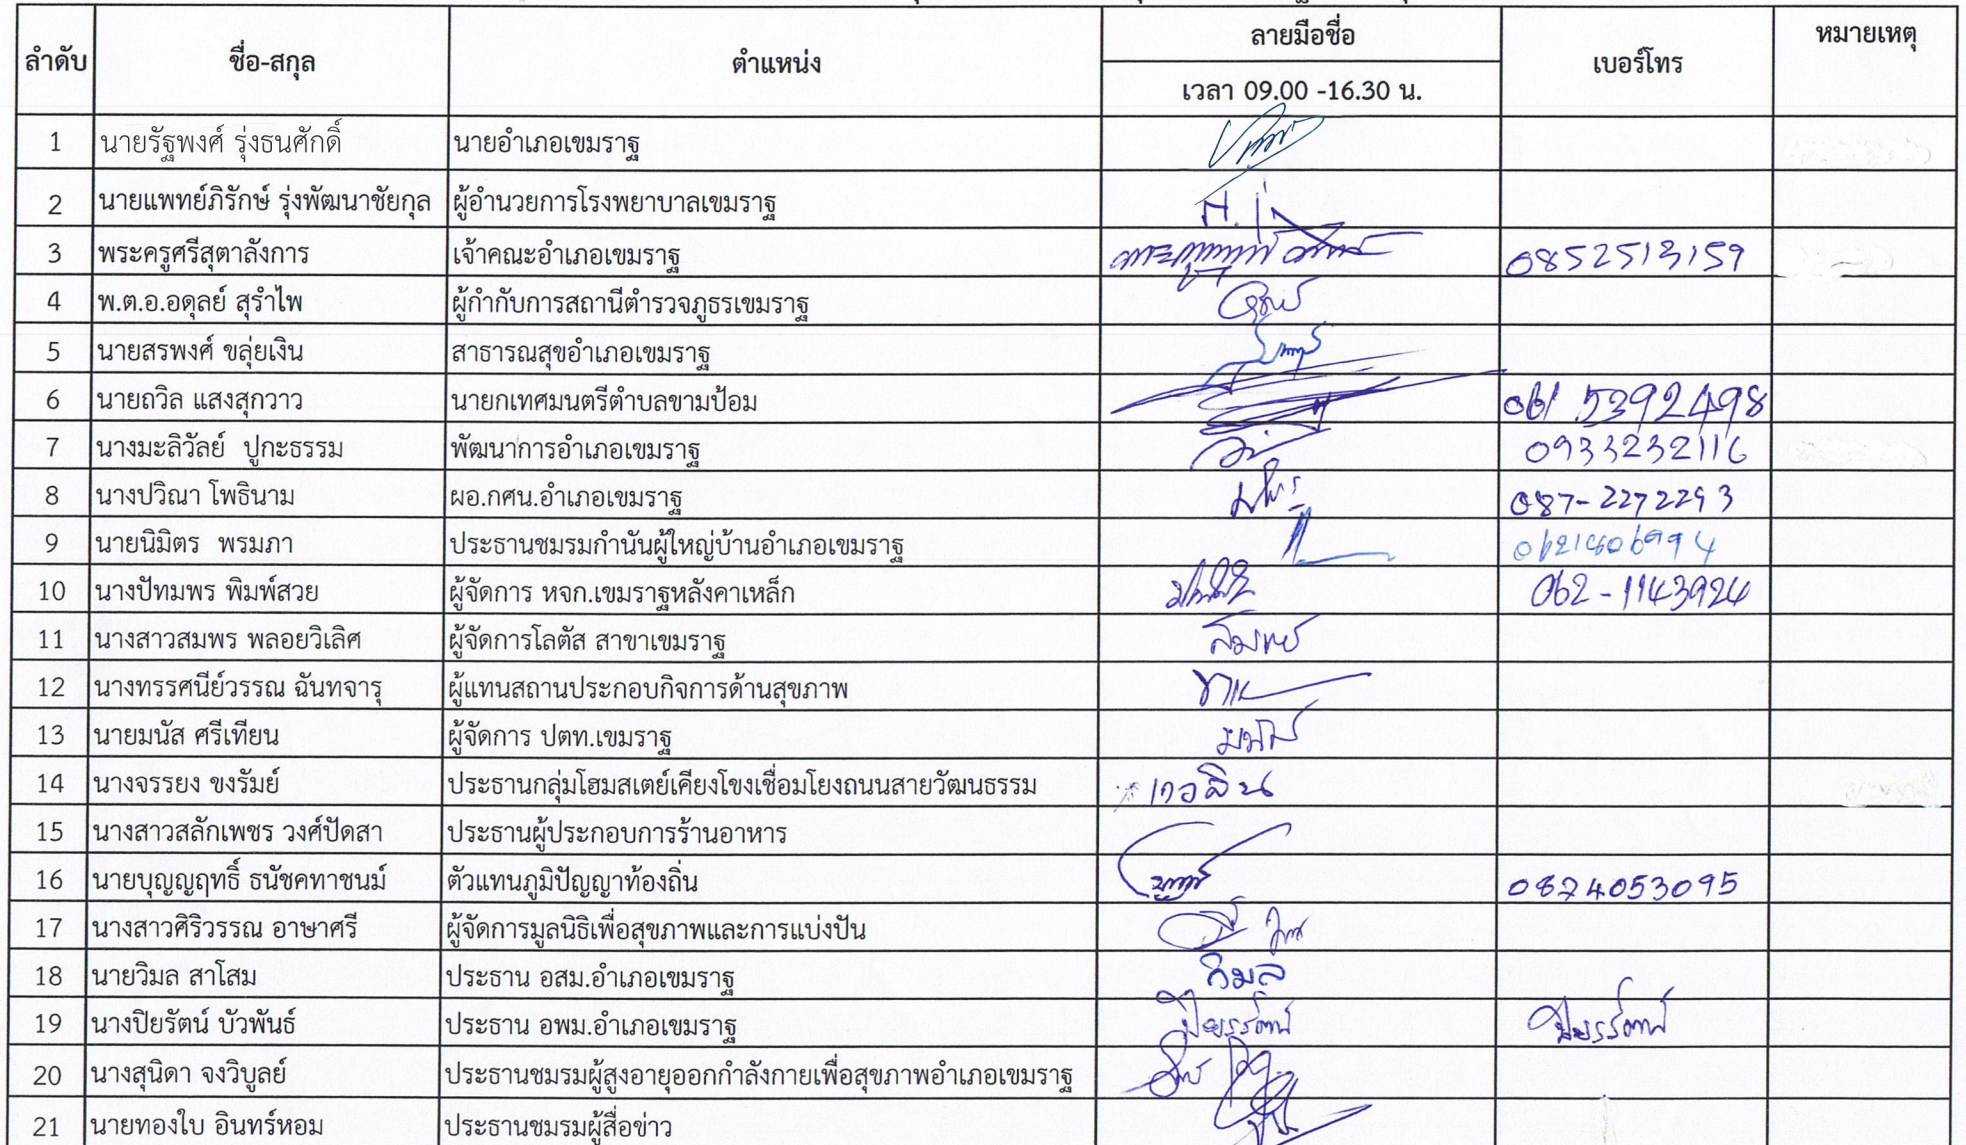 ลำดับ ชื่อ-สกุล ตำแหน่ง ลายมือชื่อ เบอร์โทร หมายเหตุ
เวลา 09.00 -16.30 น.
1 นายรัฐพงศ์ รุ่งธนศักดิ์ นายอำเภอเขมราฐ
2 นายแพทย์ภิรักษ์ รุ่งพัฒนาชัยกุล ผู้อำนวยการโรงพยาบาลเขมราฐ
3 พระครูศรีสุตาลังการ เจ้าคณะอำเภอเขมราฐ 0852513159
4 พ.ต.อ.อดุลย์ สุรำไพ ผู้กำกับการสถานีตำรวจภูธรเขมราฐ
5 นายสรพงศ์ ขลุ่ยเงิน สาธารณสุขอำเภอเขมราฐ
6 นายถวิล แสงสุกวาว นายกเทศมนตรีตำบลขามป้อม 061 5392498
7 นางมะลิวัลย์ ปูกะธรรม พัฒนาการอำเภอเขมราฐ 0933232116
8 นางปวิณา โพธินาม ผอ.กศน.อำเภอเขมราฐ 087-2272293
9 นายนิมิตร พรมภา ประธานชมรมกำนันผู้ใหญ่บ้านอำเภอเขมราฐ
10 นางปัทมพร พิมพ์สวย ผู้จัดการ หจก.เขมราฐหลังคาเหล็ก 062-1143924
11 นางสาวสมพร พลอยวิเลิศ ผู้จัดการโลตัส สาขาเขมราฐ สมพร
12 นางทรรศนีย์วรรณ ฉันทจารุ ผู้แทนสถานประกอบกิจการด้านสุขภาพ
13 นายมนัส ศรีเทียน ผู้จัดการ ปตท.เขมราฐ มนัส
14 นางจรรยง ขงรัมย์ ประธานกลุ่มโฮมสเตย์เคียงโขงเชื่อมโยงถนนสายวัฒนธรรม
15 นางสาวสลักเพชร วงศ์ปัดสา ประธานผู้ประกอบการร้านอาหาร
16 นายบุญญฤทธิ์ ธนัชคทาชนม์ ตัวแทนภูมิปัญญาท้องถิ่น 0874053095
17 นางสาวศิริวรรณ อาษาศรี ผู้จัดการมูลนิธิเพื่อสุขภาพและการแบ่งปัน
18 นายวิมล สาโสม ประธาน อสม.อำเภอเขมราฐ วิมล
19 นางปิยรัตน์ บัวพันธ์ ประธาน อพม.อำเภอเขมราฐ ปิยะรัตน์ ปิยะรัตน์
20 นางสุนิดา จงวิบูลย์ ประธานชมรมผู้สูงอายุออกกำลังกายเพื่อสุขภาพอำเภอเขมราฐ
21 นายทองใบ อินทร์หอม ประธานชมรมผู้สื่อข่าว